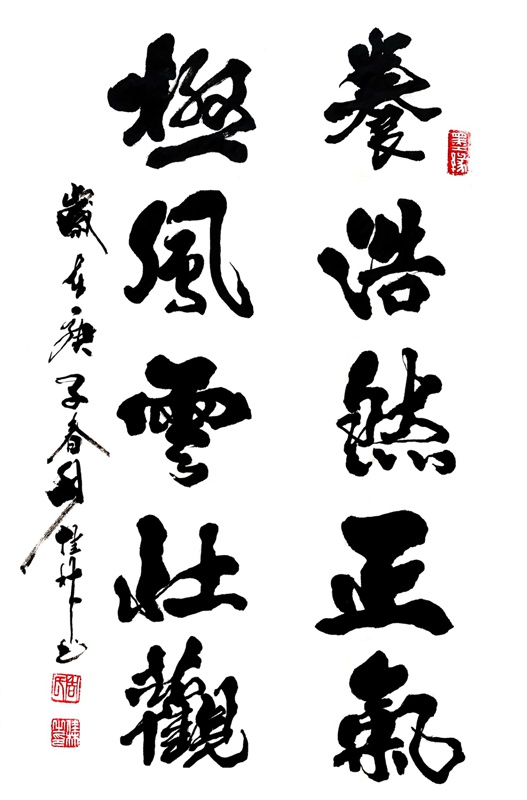 養浩然正氣
極風雲壯觀
歲在庚子春月